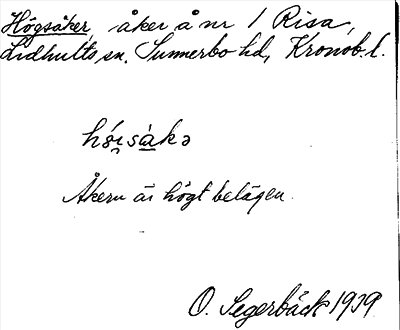 Högsåker, åker å nr 1 Risa,
Lidhults sn, Sunnerbo hd, Kronob. l.
Åkern är högt belägen.
O. Segerbäck 1939